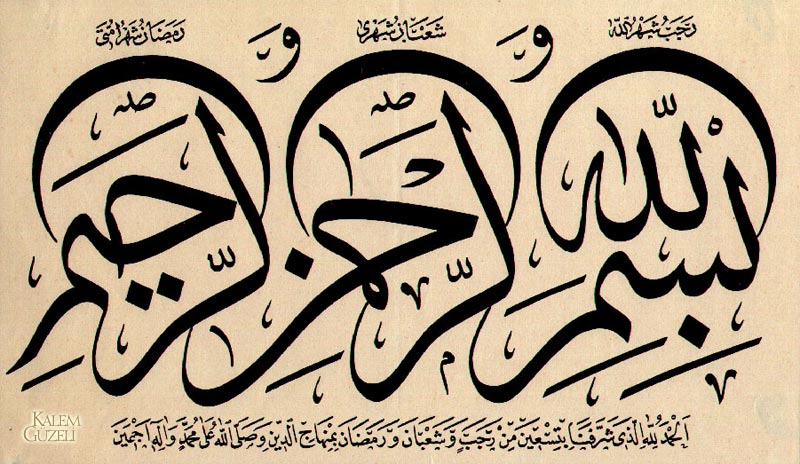 رَجَبُ شَهْرُ اللّٰه وَ شَعْبَانُ شَهْرِی وَ رَمَضَانُ شَهْرُ اُمَّتِی
بِسْمِ اللّٰهِ الرَّحْمٰنِ الرَّحِيمِ
اَلْحَمْدُ لِلّٰهِ الَّذِی شَرَّفَنَا بِتِسْعِينَ مِنْ رَجَبَ وَ شَعْبَانَ وَ رَمَضَانَ بِمِنْهَاجِ الدِّينِ وَ صَلَّی اللّٰهُ عَلٰی مُحَمَّدٍ وَ اٰلِهِ اَجْمَعِينَ
KALEM
GÜZELİ